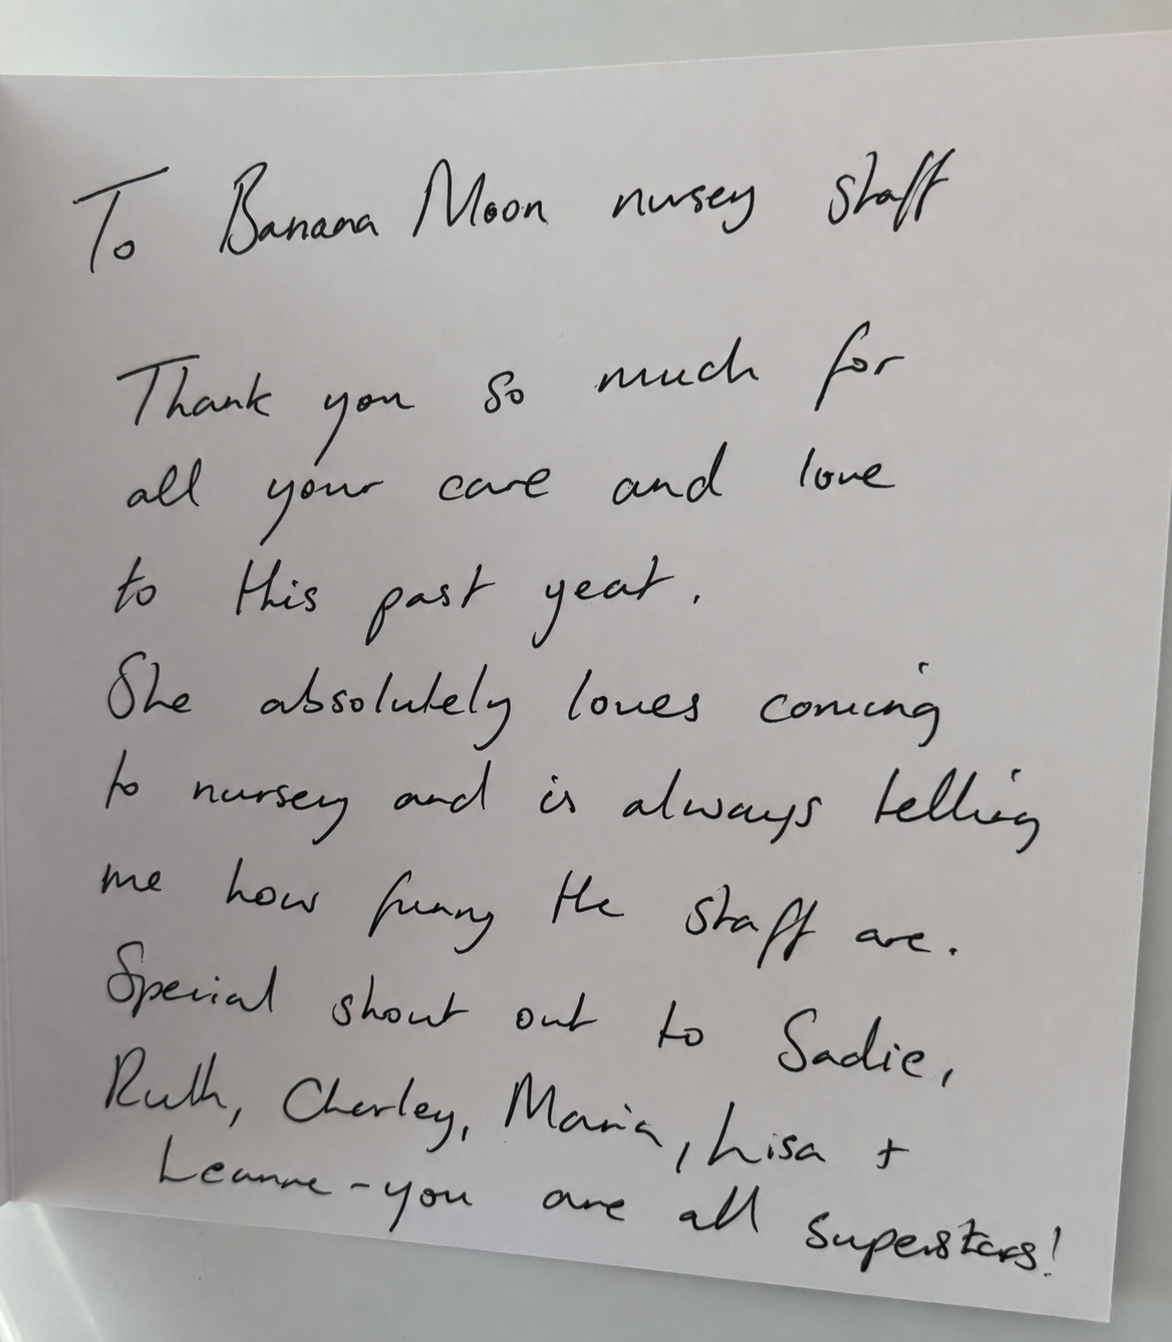 To Banana Moon nursey staff
Thank you so much for
all your care and love
to this past year.
She absolutely loves coming
to nursey and is always telling
me how funny the staff are.
Special shout out to Sadie,
Ruth, Charley, Maria, Lisa +
Leanne - you are all superstars!